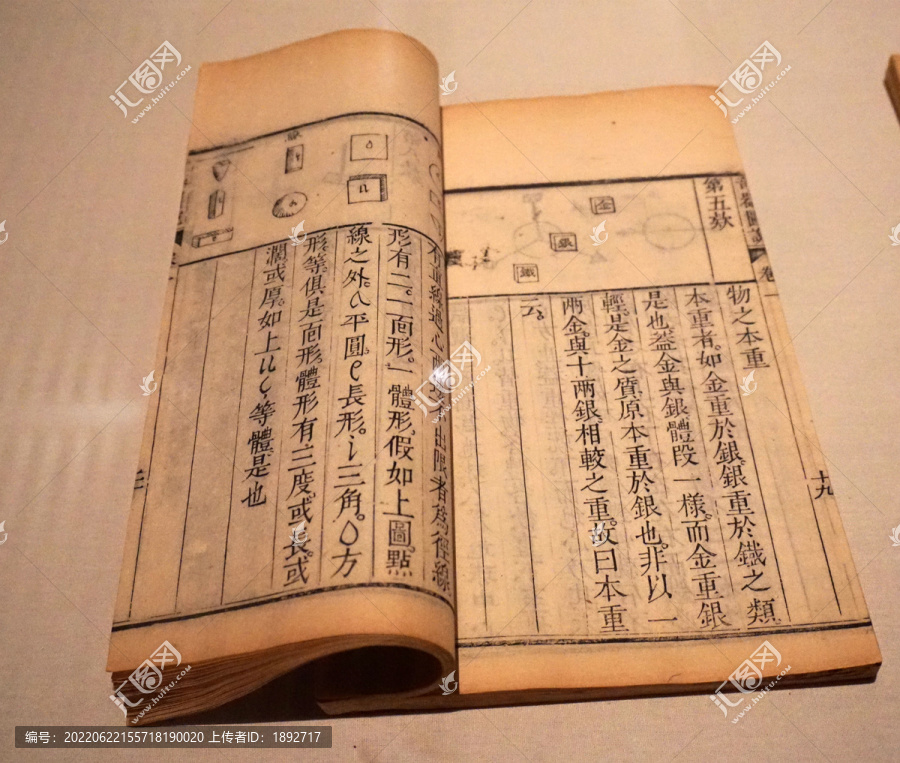 第五款
物之本重
本重者。如金重於銀。銀重於鐵之類
是也。葢金與銀體段一樣。而金重銀
輕。是金之質。原本重於銀也。非以一
兩金。與十兩銀。相較之重。故曰本重
云。
金
銀
十九
卷
過心
出限者為徑線
形有二。一面形。一體形。假如上圖。點
線之外。平圓。長形。三角。方
形。等俱是面形。體形有三度。或長。或
濶。或厚。如上等體是也
汇图网
www.huitu.com
编号：20220622155718190020 上传者ID：1892717